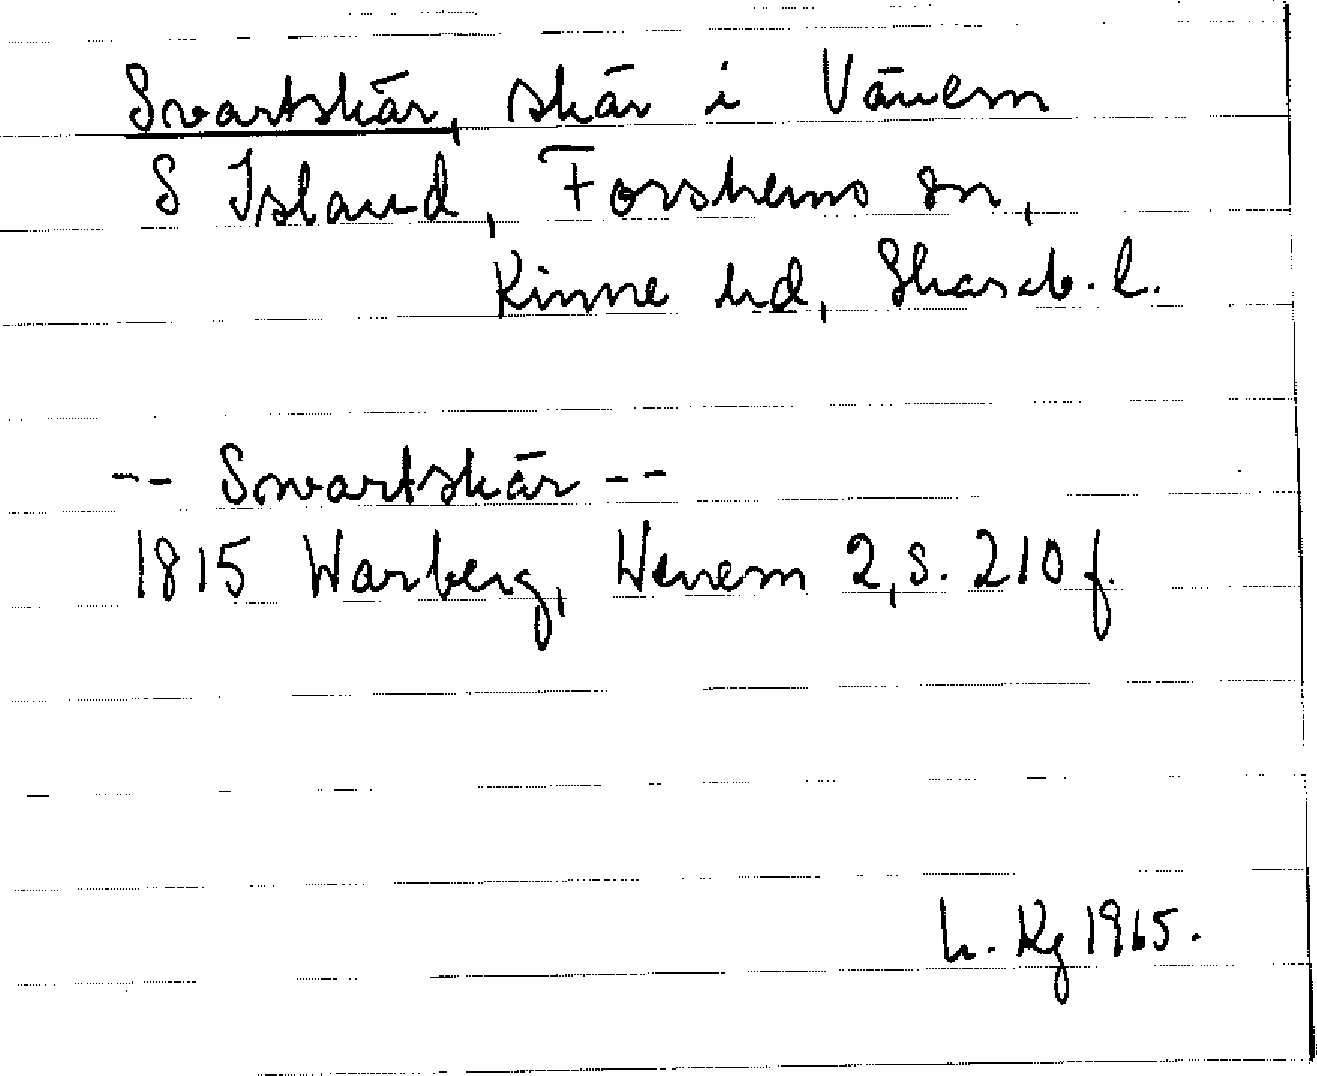 Svartskär, skär i Vänern
S Island, Forshems sn,
Kinne hd, Skarab. l.
-- Swartskär --
1815 Warberg, Wenern 2, s. 210 f.
h. Rg 1965.